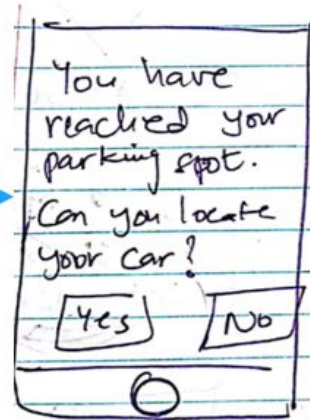 You have
reached your
parking spot.
Can you locate
your car?
Yes No